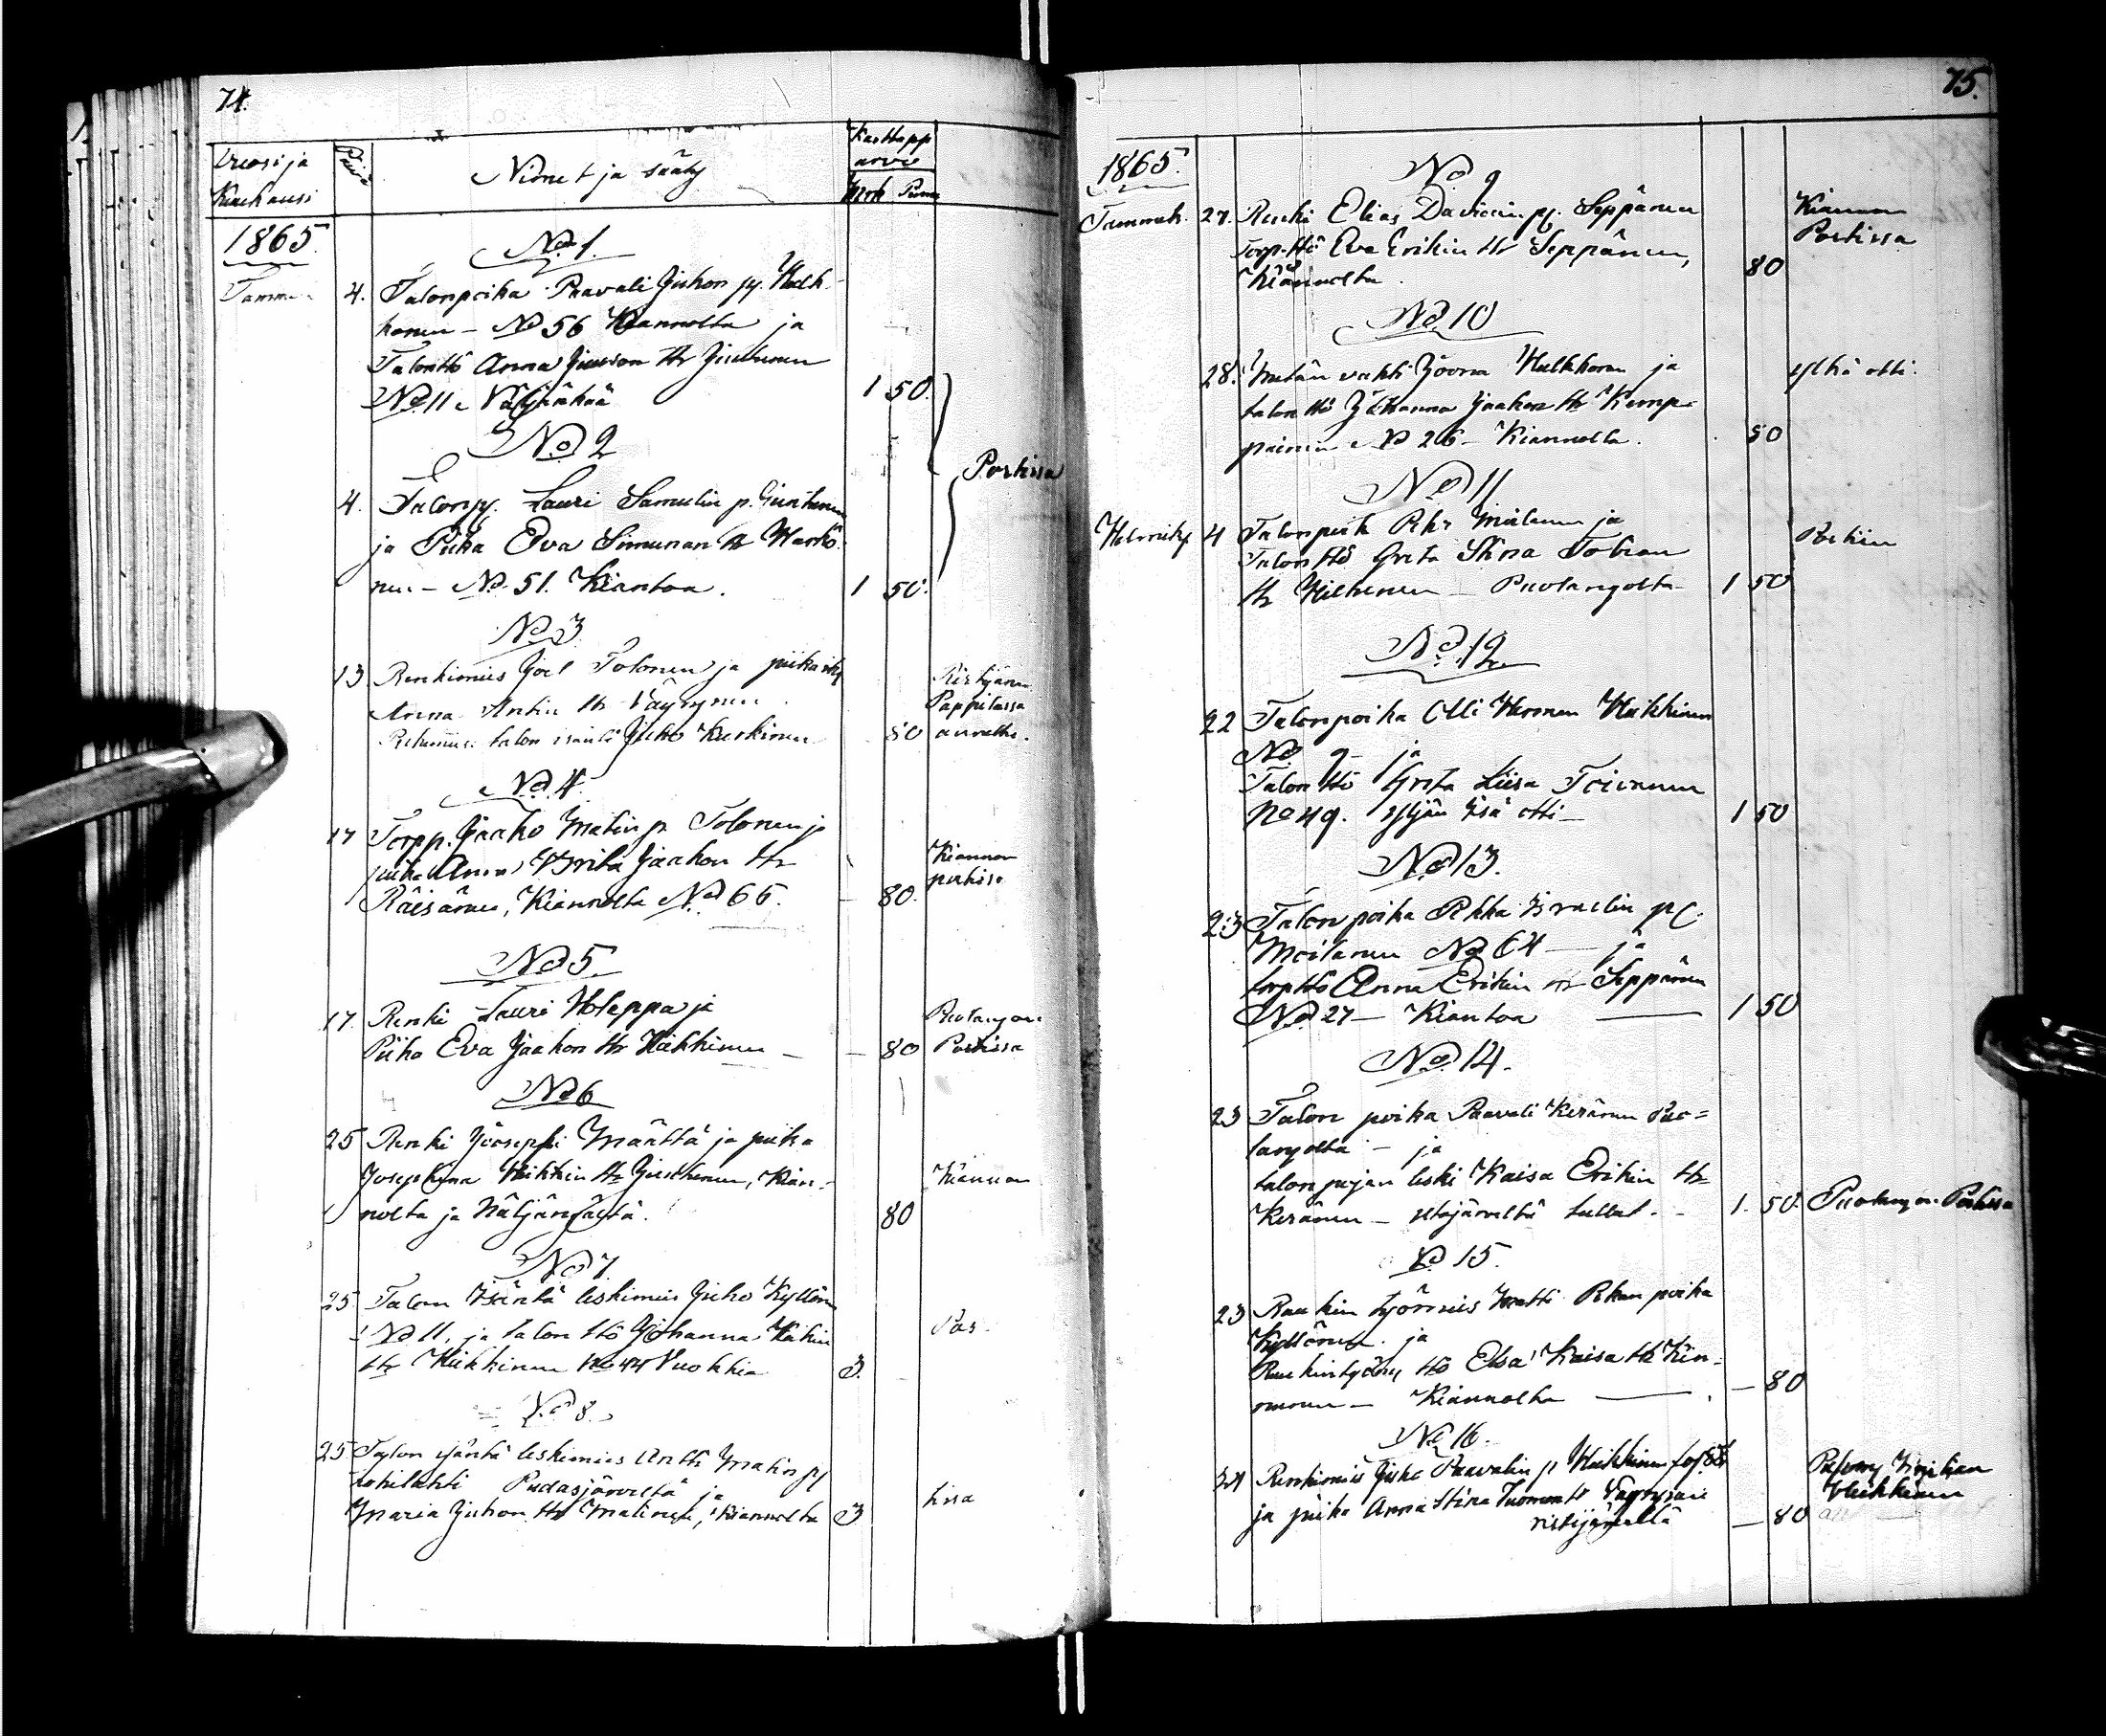 74.
Vuosi ja Kuukausi
Päivä
Nimet ja sääty
Karttapp arvo
Mrk Penn
1865.
No 1.
4. Talonpoika Paavali Juhon pj. Hulk-
konen – No 56 Kiannolta ja
Talonttö Anna Juuson ttr Juntunen
No 11 Näljänkää 1 50.
No 2
4. Talonpj. Lauri Samulin p. Juntunen
ja Piika Eva Simunan ttr
nen – No 51. Kiantoa. 1 50.
Portissa
No 3
13. Renkimies Joel Tolonen ja piika
Anna Antin ttr Väyrynen
talon isäntä Juho Keskinen 80
Pappilassa
No 4.
17 Torpp. Jaako Matin p. Tolonen ja
piika Anna Grita Jaakon ttr
Räisänen, Kiannolta No 66. – 80.
Kiannon
portissa
No 5.
17. Renki Lauri Holappa ja
Piika Eva Jaakon ttr Heikkinen – – 80
Puolangon
Portissa
No 6
25 Renki Jooseppi Määttä ja piika
Josephina Heikkin ttr Juntunen, Kian-
nolta ja Näljängältä. 80
Kiannon
No 7.
25. Talon Isäntä leskimies Juho Kyllönen
No 11. ja talon ttö Johanna
ttr Heikkinen No 44 Vuokkia 3.
Por-
No 8.
25 Talon isäntä leskimies Antti Matin pj
Pudasjärveltä ja
Maria Juhon ttr Matinen, Kiannolta 3
tissa
75.
1865.
No 9
Tammik. 27. Renki Elias Davidin pj. Seppänen
Torp. ttö Eva Erikin ttr Seppänen,
Kiannolta. 80
Kiannon
Portissa
No 10
28. Metän vahti Joona Hulkkonen ja
talon ttö Johanna Jaakon ttr Kemp-
painen No 26 – Kiannolta. 80
No 11
4 Talonpoik Pkr Moilanen ja
Talon ttö Greta Stina Tobian
ttr Hiltunen – Puolangolta – 1 50
No 12
22 Talonpoika Olli Hermon Heikkinen
No 9 – ja
Talon ttö Greta Liisa Toivanen
No 49. Yljän Isä otti – 1 50
No 13.
23 Talonpoika Pekka Israelin pj.
Moilanen No 64 – ja
torpttö Anna Erikin ttr Seppänen
No 27 – Kiantoa – 1 50
No 14.
23 Talon poika Paavali Keränen Puo=
langolta – ja
talonpojan leski Kaisa Erikin ttr
Keränen – Utajärveltä tullut. – 1. 50. Puolangon Portissa
No 15.
23 Ruukin työmies Matti Pekan poika
Kyllönen ja
Ruukintyöm ttö Elsa Kaisa ttr
Kiannolta – – 80
No 16.
24 Renkimies Juho Paavalin p Heikkinen
ja piika Anna Stina Tuomon ttr Väyrynen
ristijärveltä – 80
Heikkinen